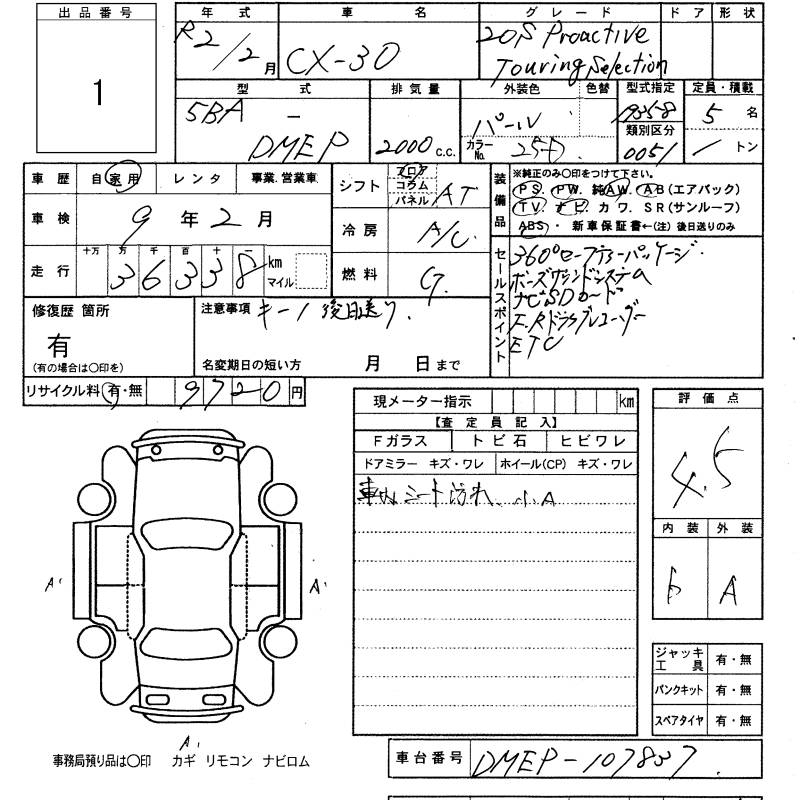 出品番号
1
年式 車名 グレード ドア 形状
R2/2月 CX-30 20S Proactive
Touring Selection
型式 排気量 外装色 色替 型式指定 定員・積載
5BA - DMEP 2000c.c. パール カラーNo. 類別区分 0051 5名
/トン
車歴 自家用 レンタ 事業.営業車
車検 9年2月
走行 十万 万 千 百 十 一
36338 km マイル
シフト フロア コラム パネル AT
冷房 A/C
燃料 G
装備品
※純正のみ〇印をつけて下さい。
PS. PW. 純AW. AB(エアバック)
TV. ナビ. カワ. SR(サンルーフ)
ABS. ・新車保証書←(注)後日送りのみ
セールスポイント
360°セーフティーパッケージ
ボーズサウンドシステム
ナビSDカード
F.Rドラブレコーダー
ETC
修復歴 箇所
有
(有の場合は〇印を)
注意事項 キー1 後日送り.
名変期日の短い方 月 日まで
リサイクル料 有・無 9720円
現メーター指示 km
【査定員記入】
Fガラス トビ石 ヒビワレ
ドアミラー キズ・ワレ ホイール(CP) キズ・ワレ
シート汚れ、小A
評価点
4.5
内装 外装
b A
ジャッキ工具 有・無
パンクキット 有・無
スペアタイヤ 有・無
A' A'
A'
事務局預り品は〇印 カギ リモコン ナビロム
車台番号 DMEP-107837